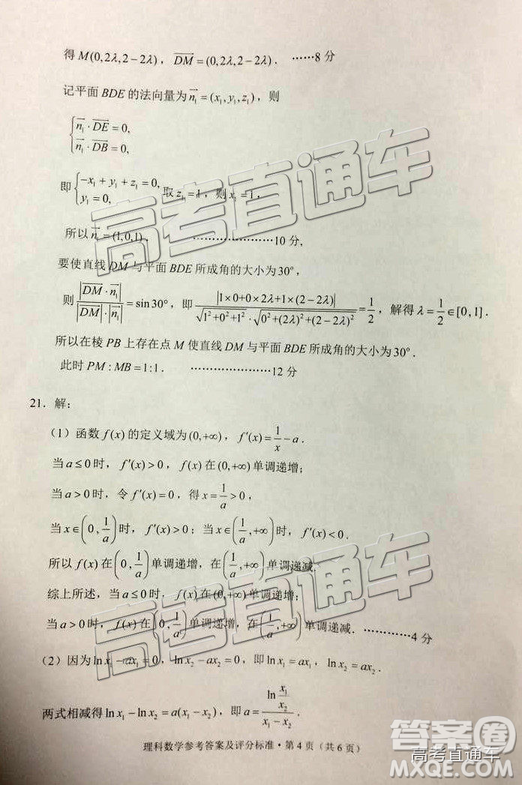 得 M(0,2λ,2−2λ)，DM→=(0,2λ,2−2λ)．……8 分
记平面 BDE 的法向量为 n₁→=(x₁,y₁,z₁)，则
{n₁→·DE→=0,
n₁→·DB→=0,
即{−x₁+y₁+z₁=0, y₁=0, 取 z₁=1，则 x₁=1，
所以 n₁→=(1,0,1)．……………10 分，
要使直线 DM 与平面 BDE 所成角的大小为30°，
则 |DM→·n₁→|/(|DM→|·|n₁→|)=sin30°，即 |1×0+0×2λ+1×(2−2λ)|/(√(1²+0²+1²)·√(0²+(2λ)²+(2−2λ)²))=1/2，解得 λ=1/2∈[0,1]．
所以在棱 PB 上存在点 M 使直线 DM 与平面 BDE 所成角的大小为30°．
此时 PM:MB=1:1．………………12 分
21．解：
（1）函数 f(x) 的定义域为(0,+∞)，f′(x)=1/x−a．
当 a≤0 时，f′(x)>0，f(x) 在(0,+∞)单调递增；
当 a>0 时，令 f′(x)=0，得 x=1/a>0，
当 x∈(0,1/a) 时，f′(x)>0；当 x∈(1/a,+∞) 时，f′(x)<0，
所以 f(x) 在(0,1/a)单调递增，在(1/a,+∞)单调递减．
综上所述，当 a≤0 时，f(x) 在(0,+∞)单调递增；
当 a>0 时，f(x) 在(0,1/a)单调递增，在(1/a,+∞)单调递减．…………4 分
（2）因为 ln x₁−ax₁=0，ln x₂−ax₂=0，即 ln x₁=ax₁，ln x₂=ax₂．
两式相减得 ln x₁−ln x₂=a(x₁−x₂)，即 a=ln(x₁/x₂)/(x₁−x₂)
理科数学参考答案及评分标准·第 4 页（共 6 页）
高考直通车
高考直通车
答案圈
MXQE.COM
高考直通车